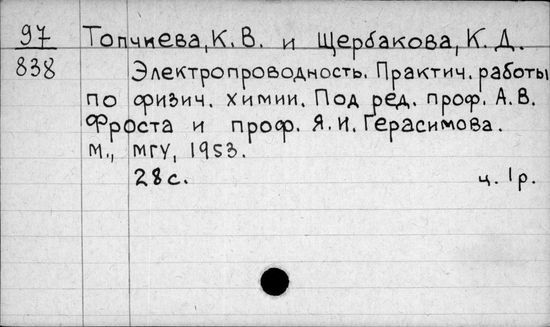 97 Топчиева, К. В. и Щербакова, К. Д.
838 Электропроводность. Практич. работы
по физич. химии. Под ред. проф. А. В.
Фроста и проф. Я. И. Герасимова.
М., МГУ, 1953.
28 с. ц. 1 р.